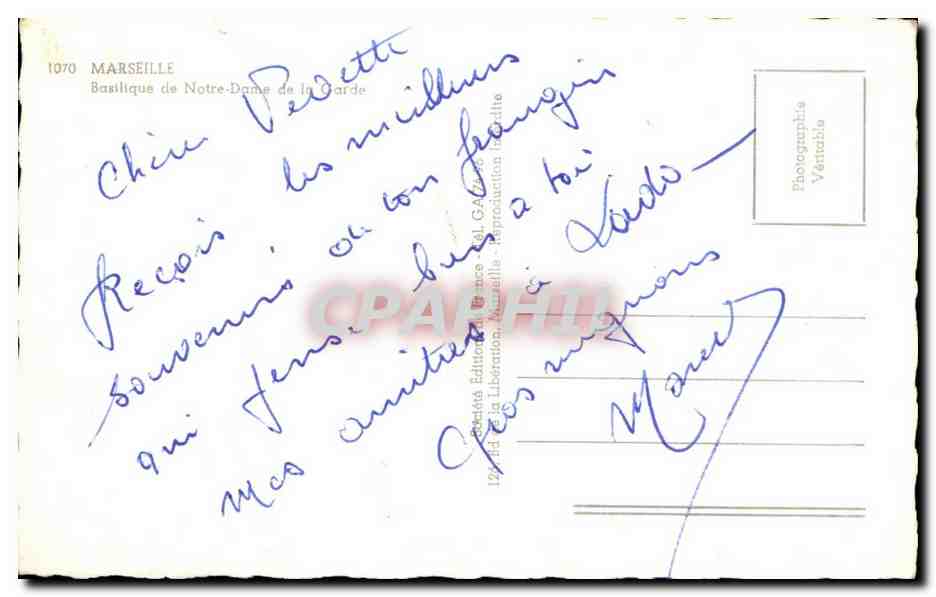 1070 MARSEILLE
Basilique de Notre-Dame de la Garde
Chère
Reçois les meilleurs
souvenirs de ton frangin
qui pense bien à toi
mes amitiés à
Gros mignons
Marcel
Société Editions de France - Tél. GA.
126 Bd de la Libération, Marseille - Reproduction Interdite
Photographie
Véritable
CPAPHIL